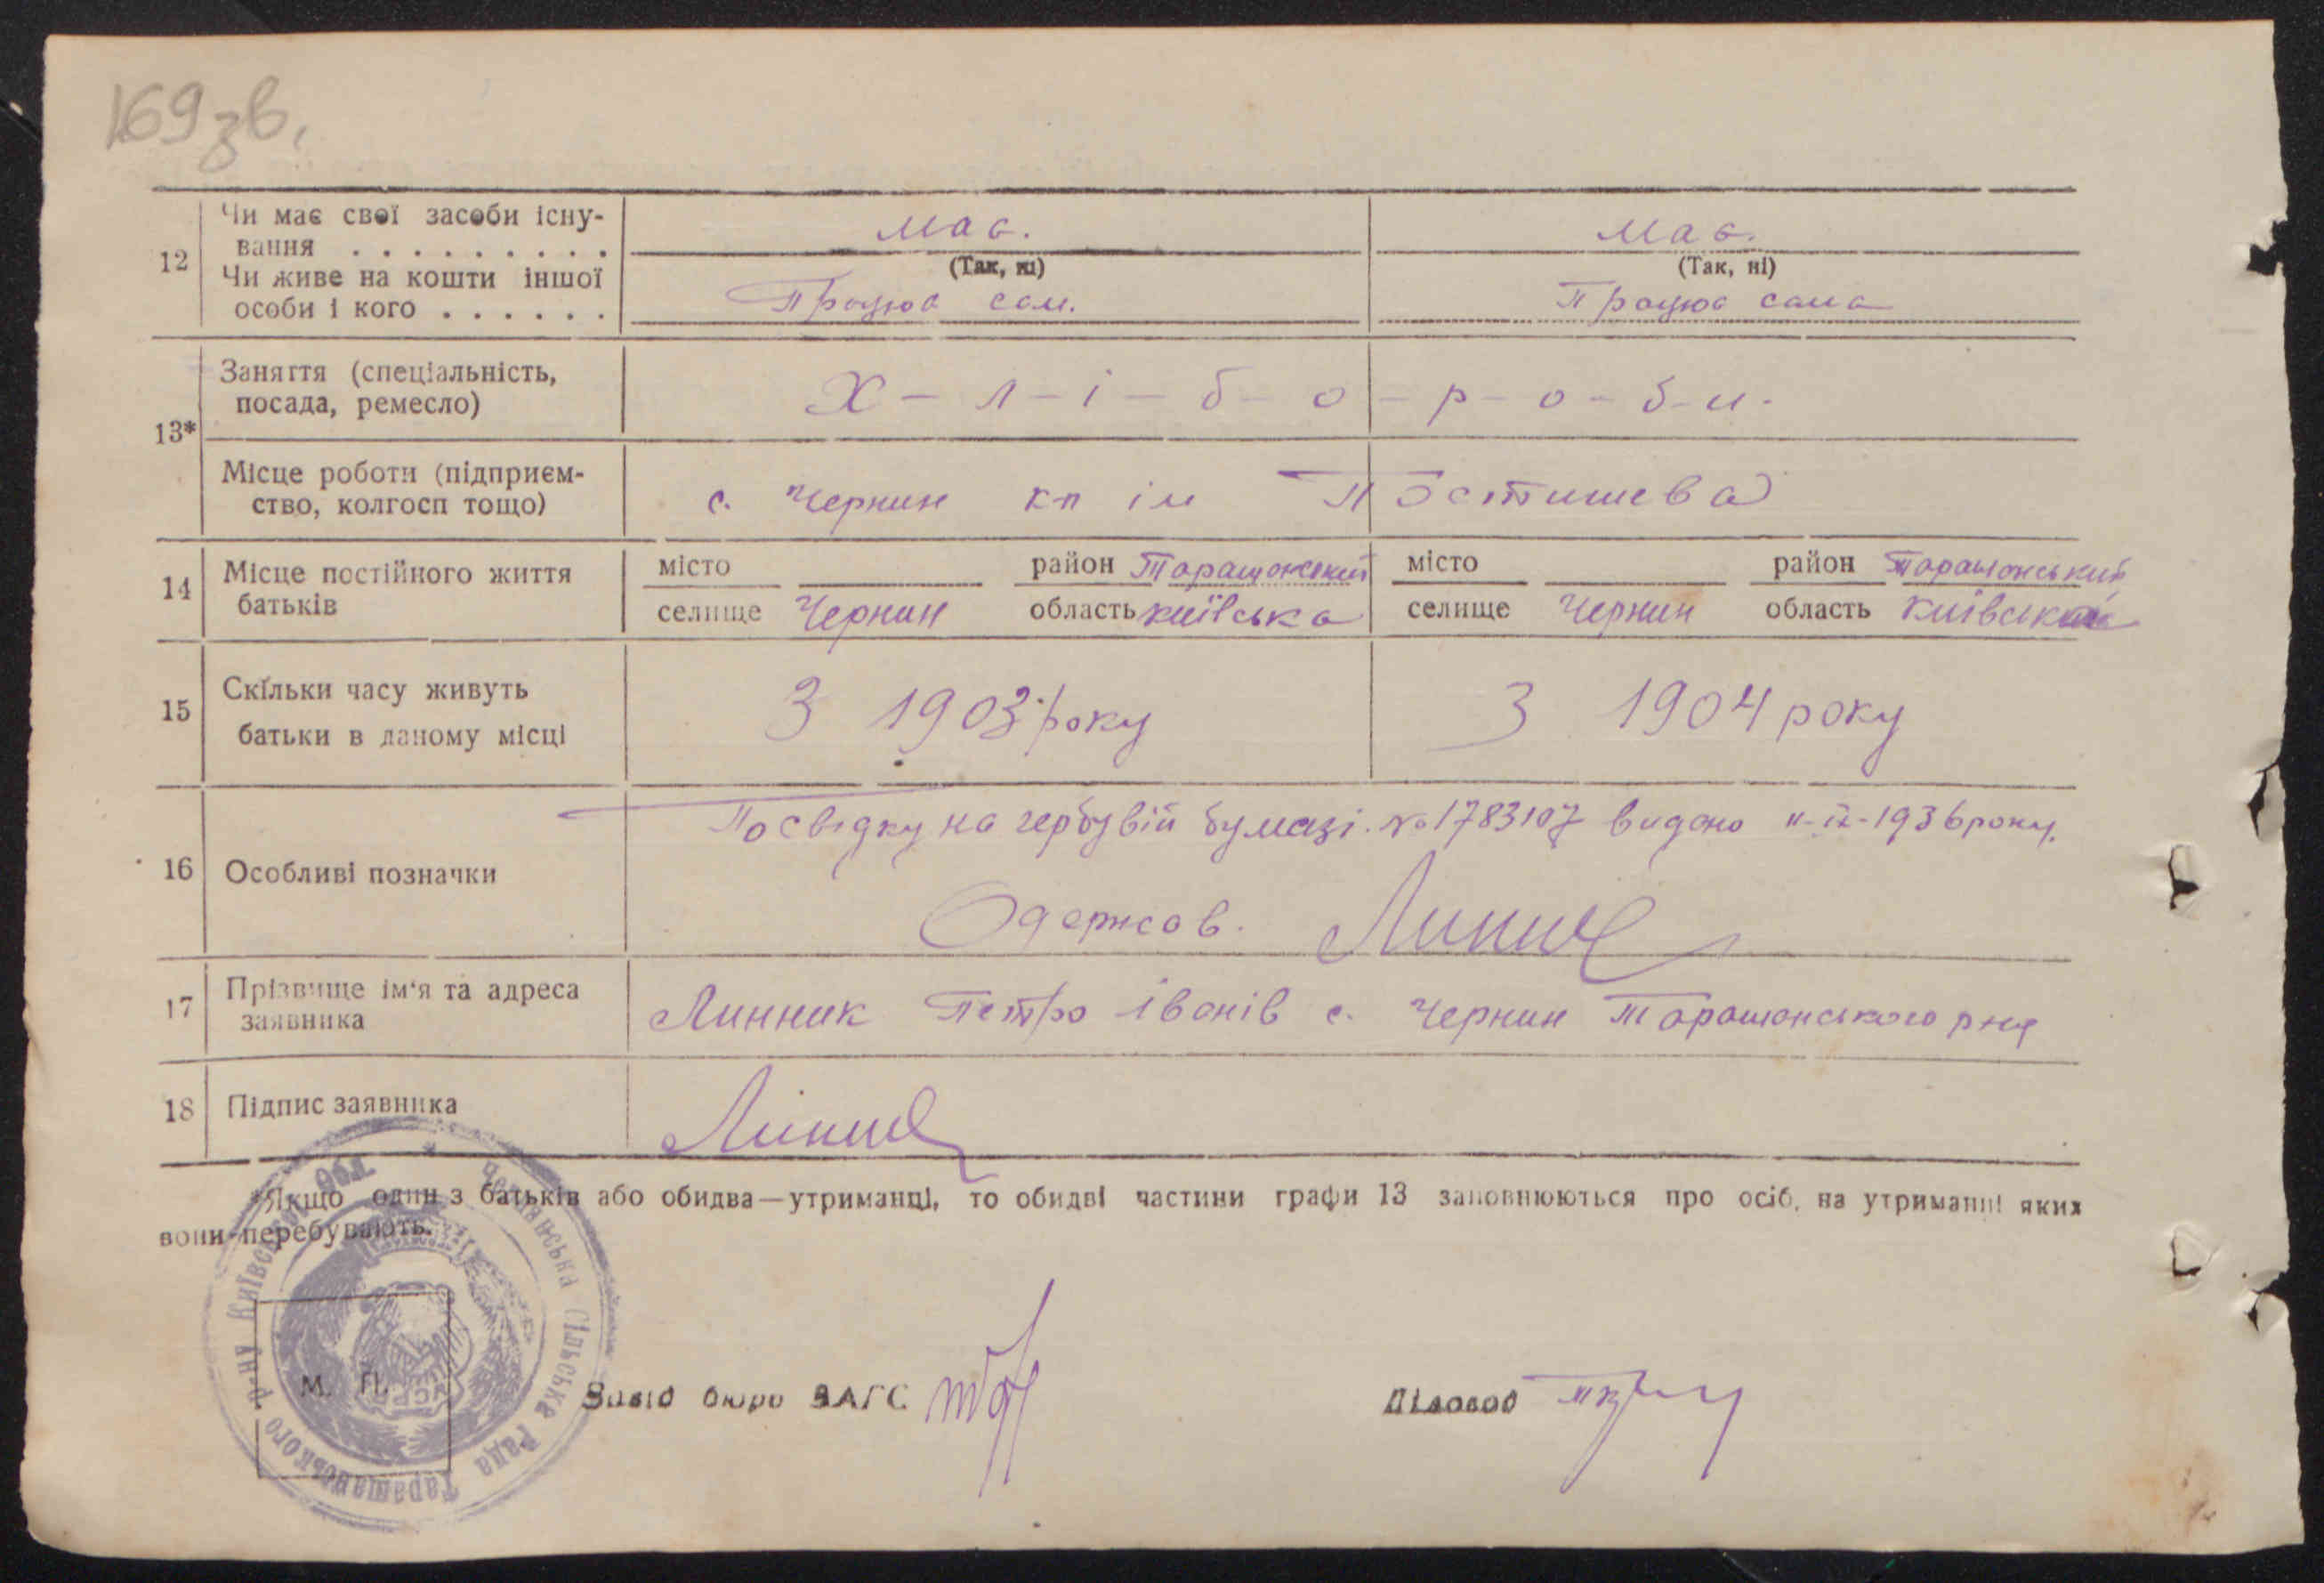 169зв.
12 Чи має свої засоби існу- має. має.
вання . . . . . . . . . (Так, ні) (Так, ні)
Чи живе на кошти іншої
особи і кого . . . . . . Працює сам. Працює сама
13* Заняття (спеціальність,
посада, ремесло) Х - л - і - б - о - р - о - б - и.
Місце роботи (підприєм-
ство, колгосп тощо) с. Чернин к-п ім Постишева
14 Місце постійного життя місто район Таращанський місто район Таращанський
батьків селище Чернин область київська селище Чернин область
15 Скільки часу живуть
батьки в даному місці З 1903 року З 1904 року
Посвідку на гербувій бумазі. № 1783107 видано 11-IV-1936 року.
16 Особливі позначки
Одержав. Линник
17 Прізвище ім'я та адреса
заявника Линник Петро Іванів с. Чернин Таращанського р-ну
18 Підпис заявника Линник
*Якщо один з батьків або обидва—утриманці, то обидві частини графи 13 заповнюються про осіб, на утриманні яких
вони перебувають.
М. П.
Завід бюро ЗАГС Діловод
Сільська Рада Таращанського р-ну Київської Обл.